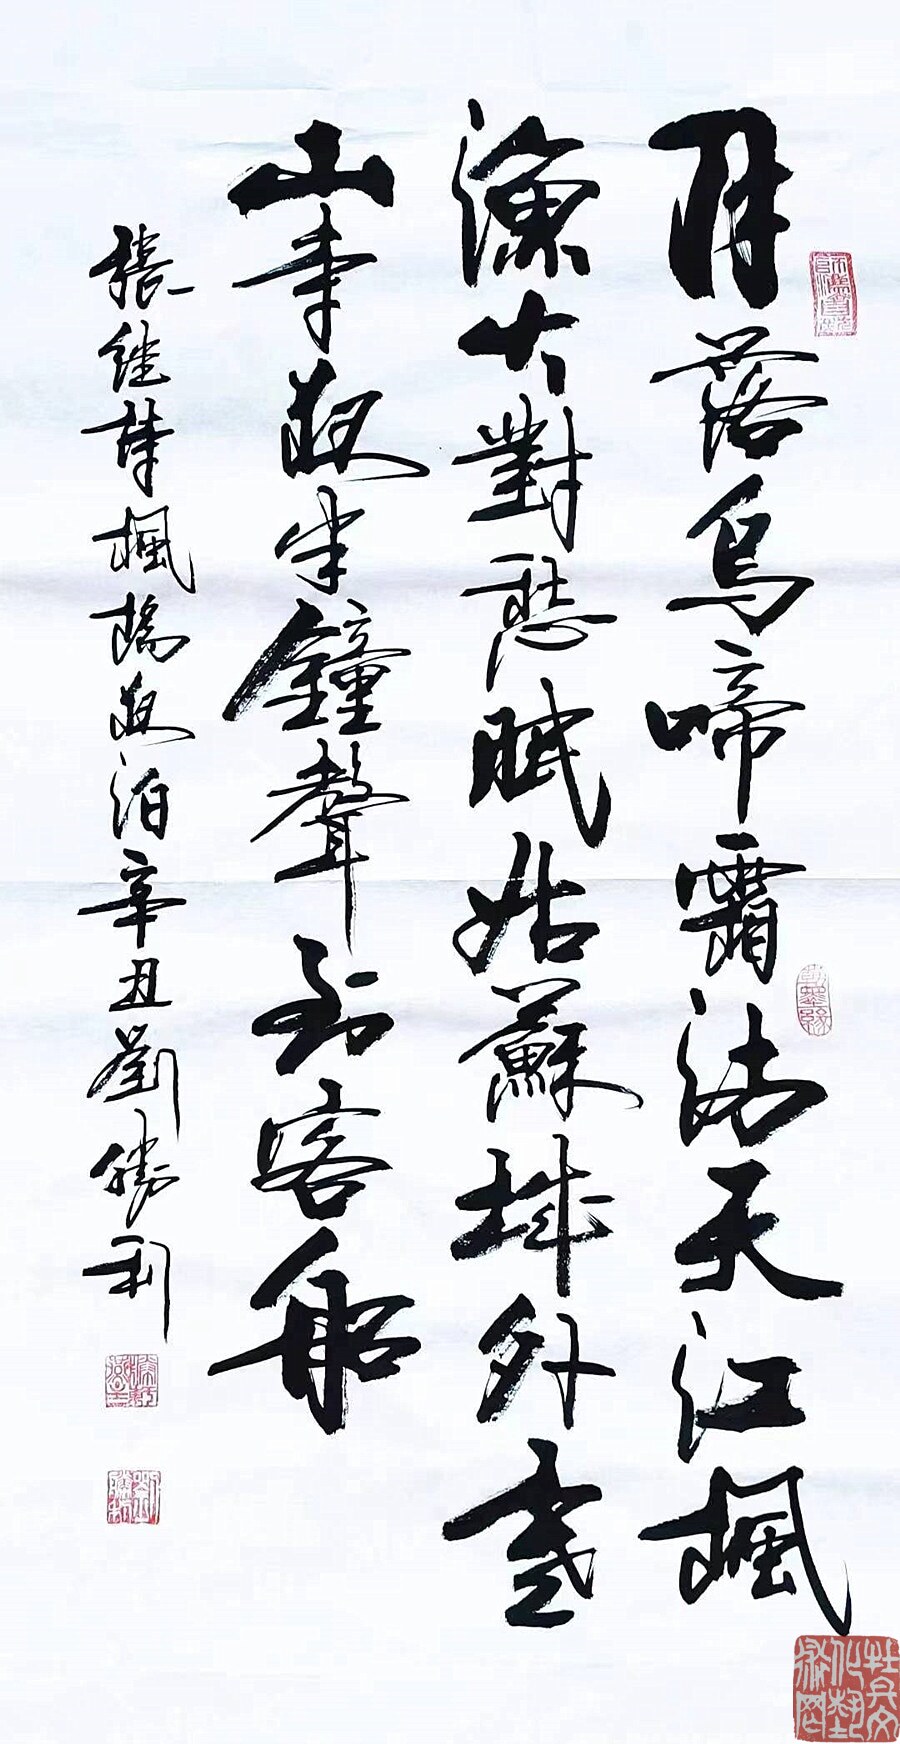 月落烏啼霜滿天江楓
漁火對愁眠姑蘇城外寒
山寺夜半鐘聲到客船
張繼詩楓橋夜泊辛丑劉勝利
劉勝利